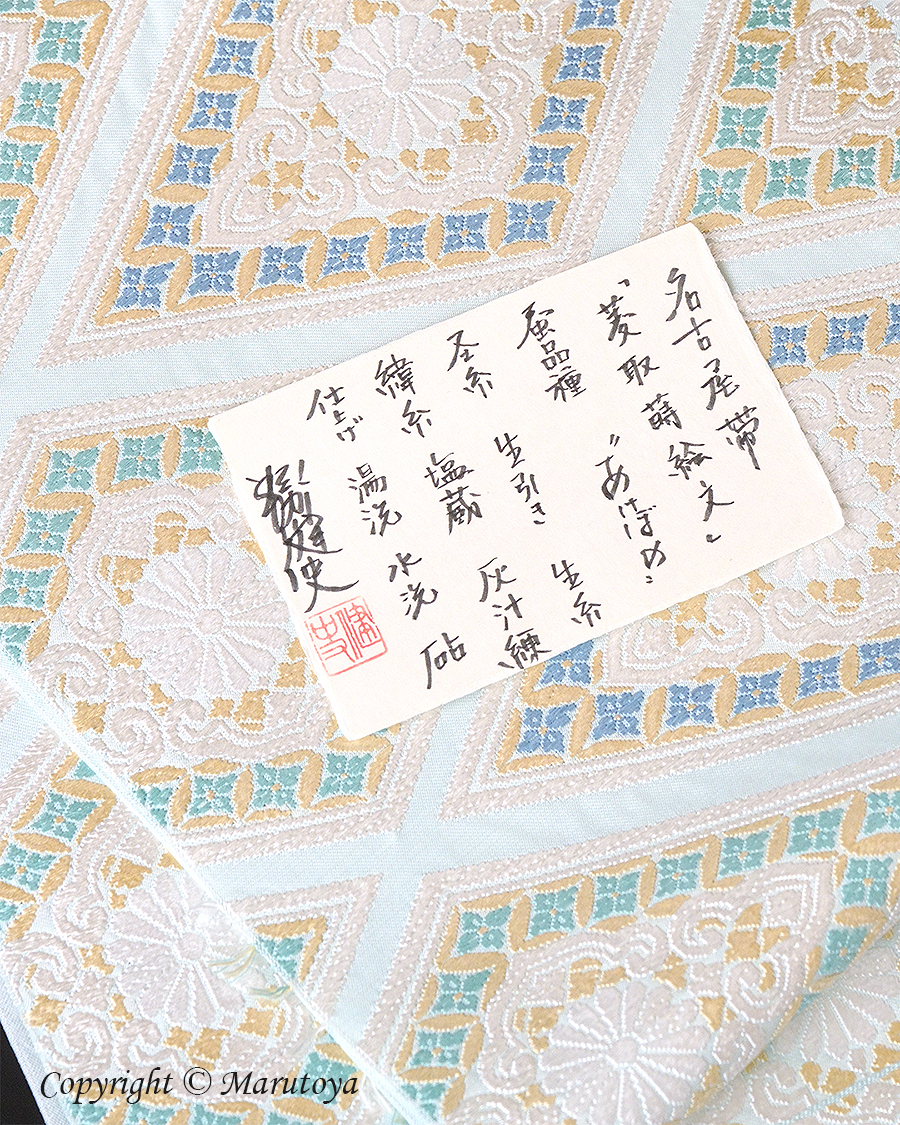 名古屋帯
〝菱取蒔絵文〟
蚕品種 〝あけぼの〟
圣糸 生引き 生糸
緯糸 塩蔵 灰汁練
仕上げ 湯洗 水洗 砧
健史
Copyright © Marutoya